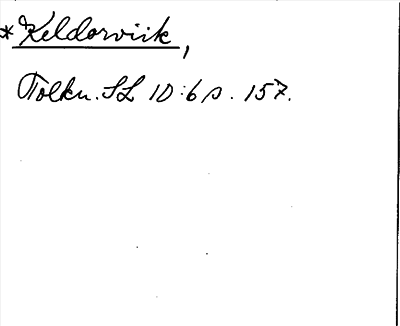 *Keldorviik,
Tolkn. SL 10:6 s. 157.